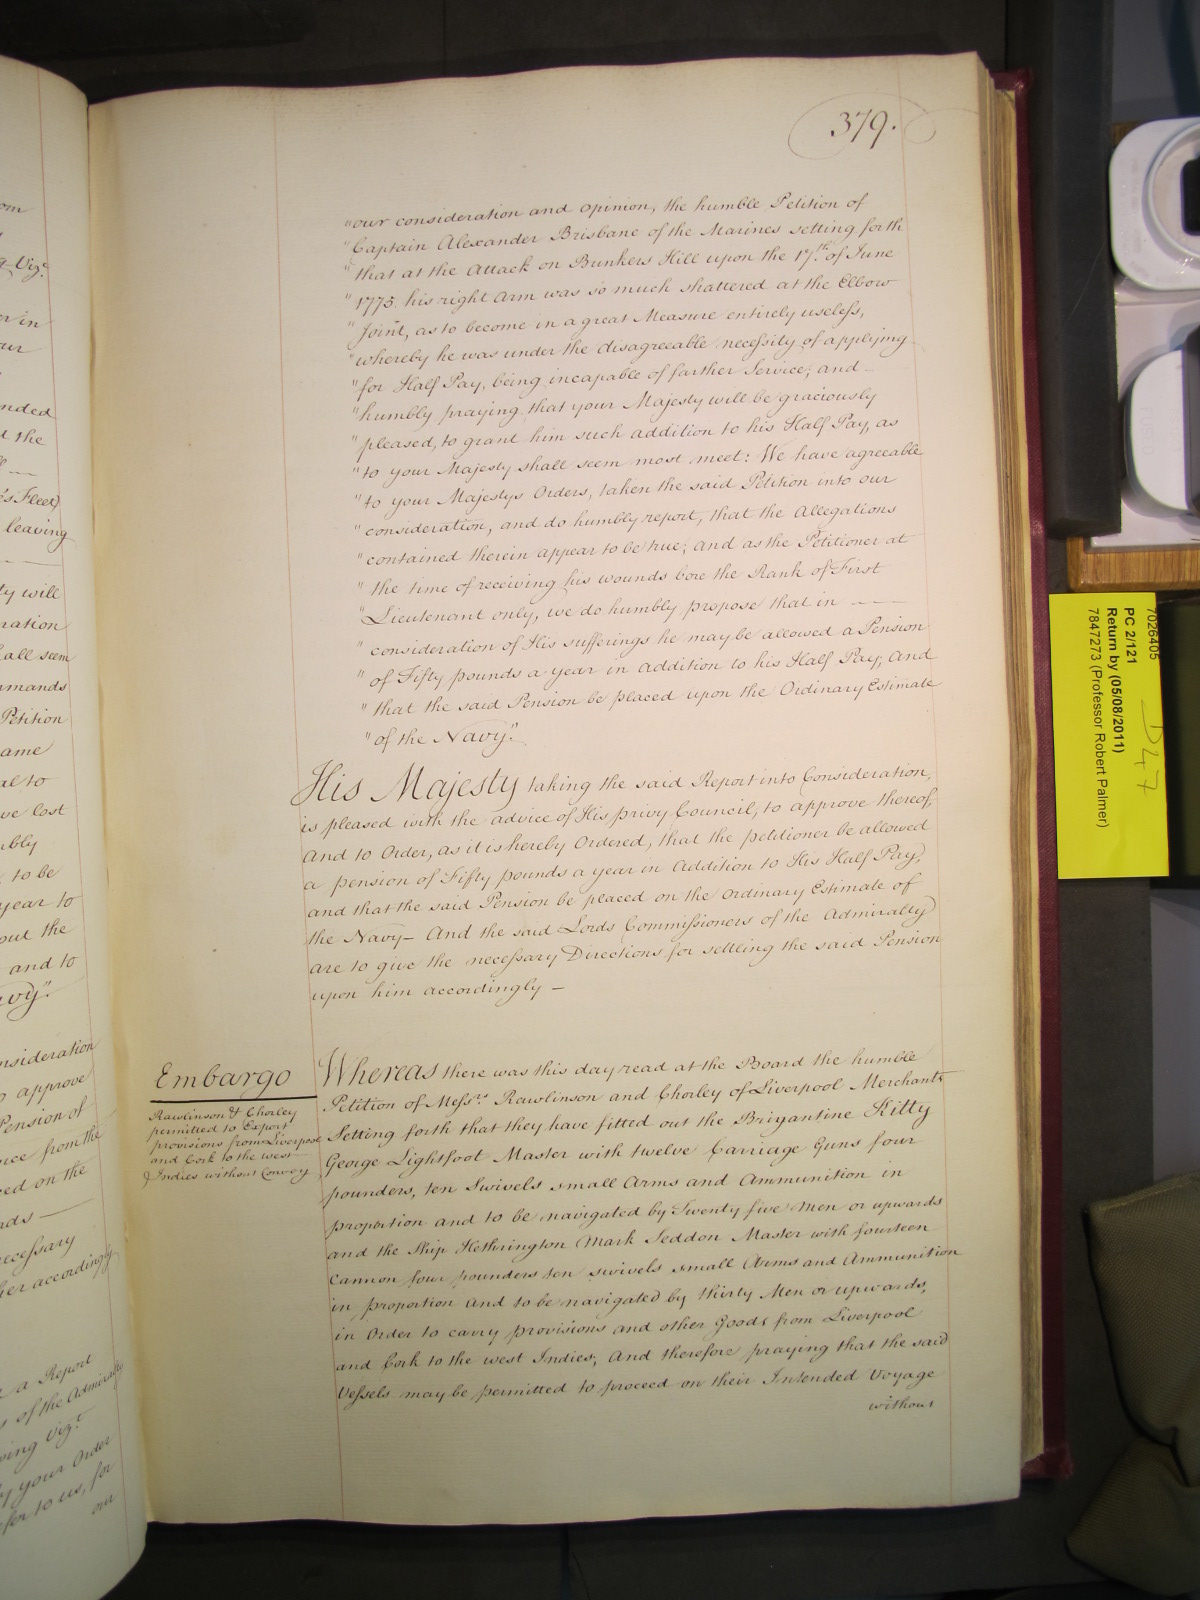 379.
"our consideration and opinion, the humble Petition of
"Captain Alexander Brisbane of the Marines setting forth
"that at the Attack on Bunkers Hill upon the 17th. of June
"1775 his right Arm was so much shattered at the Elbow
"Joint, as to become in a great Measure entirely useless,
"whereby he was under the disagreeable necessity of applying
"for Half Pay, being incapable of farther Service; and –
"humbly praying that your Majesty will be graciously
"pleased, to grant him such addition to his Half Pay, as
"to your Majesty shall seem most meet: We have agreeable
"to your Majestys Orders, taken the said Petition into our
"consideration, and do humbly report, that the Allegations
"contained therein appear to be true; and as the Petitioner at
"the time of receiving his wounds bore the Rank of First
"Lieutenant only, we do humbly propose that in ———
"consideration of His sufferings he may be allowed a Pension
"of Fifty pounds a year in addition to his Half Pay; And
"that the said Pension be placed upon the Ordinary Estimate
"of the Navy."
His Majesty taking the said Report into Consideration,
is pleased with the advice of His privy Council, to approve thereof,
And to Order, as it is hereby Ordered, that the petitioner be allowed
a pension of Fifty pounds a year in Addition to His Half Pay,
and that the said Pension be placed on the Ordinary Estimate of
the Navy – And the said Lords Commissioners of the Admiralty
are to give the necessary Directions for settling the said Pension
upon him accordingly –
Embargo
Rawlinson & Chorley
permitted to Export
provisions from Liverpool
and Cork to the west
Indies without Convoy
Whereas there was this day read at the Board the humble
Petition of Messrs. Rawlinson and Chorley of Liverpool Merchants
Setting forth that they have fitted out the Brigantine Kitty
George Lightfoot Master with twelve Carriage Guns four
pounders, ten Swivels small Arms and Ammunition in
proportion and to be navigated by Twenty five Men or upwards
and the Ship Hethrington Mark Seddon Master with fourteen
Cannon four pounders ten swivels small Arms and Ammunition
in proportion and to be navigated by thirty Men or upwards,
in Order to carry provisions and other Goods from Liverpool
and Cork to the west Indies; And therefore praying that the said
Vessels may be permitted to proceed on their Intended Voyage
without
7026405
PC 2/121
Return by (05/08/2011)
7847273 (Professor Robert Palmer)
D47
om
Vizt.
er in
our
nded
d the
's Fleet
leaving
ty will
ration
hall seem
mmands
Petition
ame
al to
ve lost
mbly
to be
year to
out the
and to
avy".
nsideration
approve
Pension of
nce from the
ed on the
nds —
necessary
her accordingly
a Report
s of the Admiralty
wing Vizt.
y your Order
efer to us, for
our